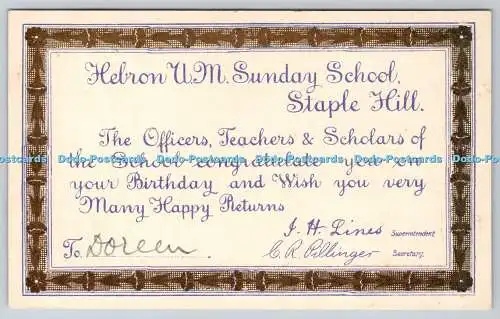 Hebron U.M. Sunday School,
Staple Hill.
The Officers, Teachers & Scholars of
the School congratulate you on
your Birthday and Wish you very
Many Happy Returns
J. H. Lines Superintendent
To Doreen C. R. Pillinger Secretary.
Dodo-Postcards Dodo-Postcards Dodo-Postcards Dodo-Postcards